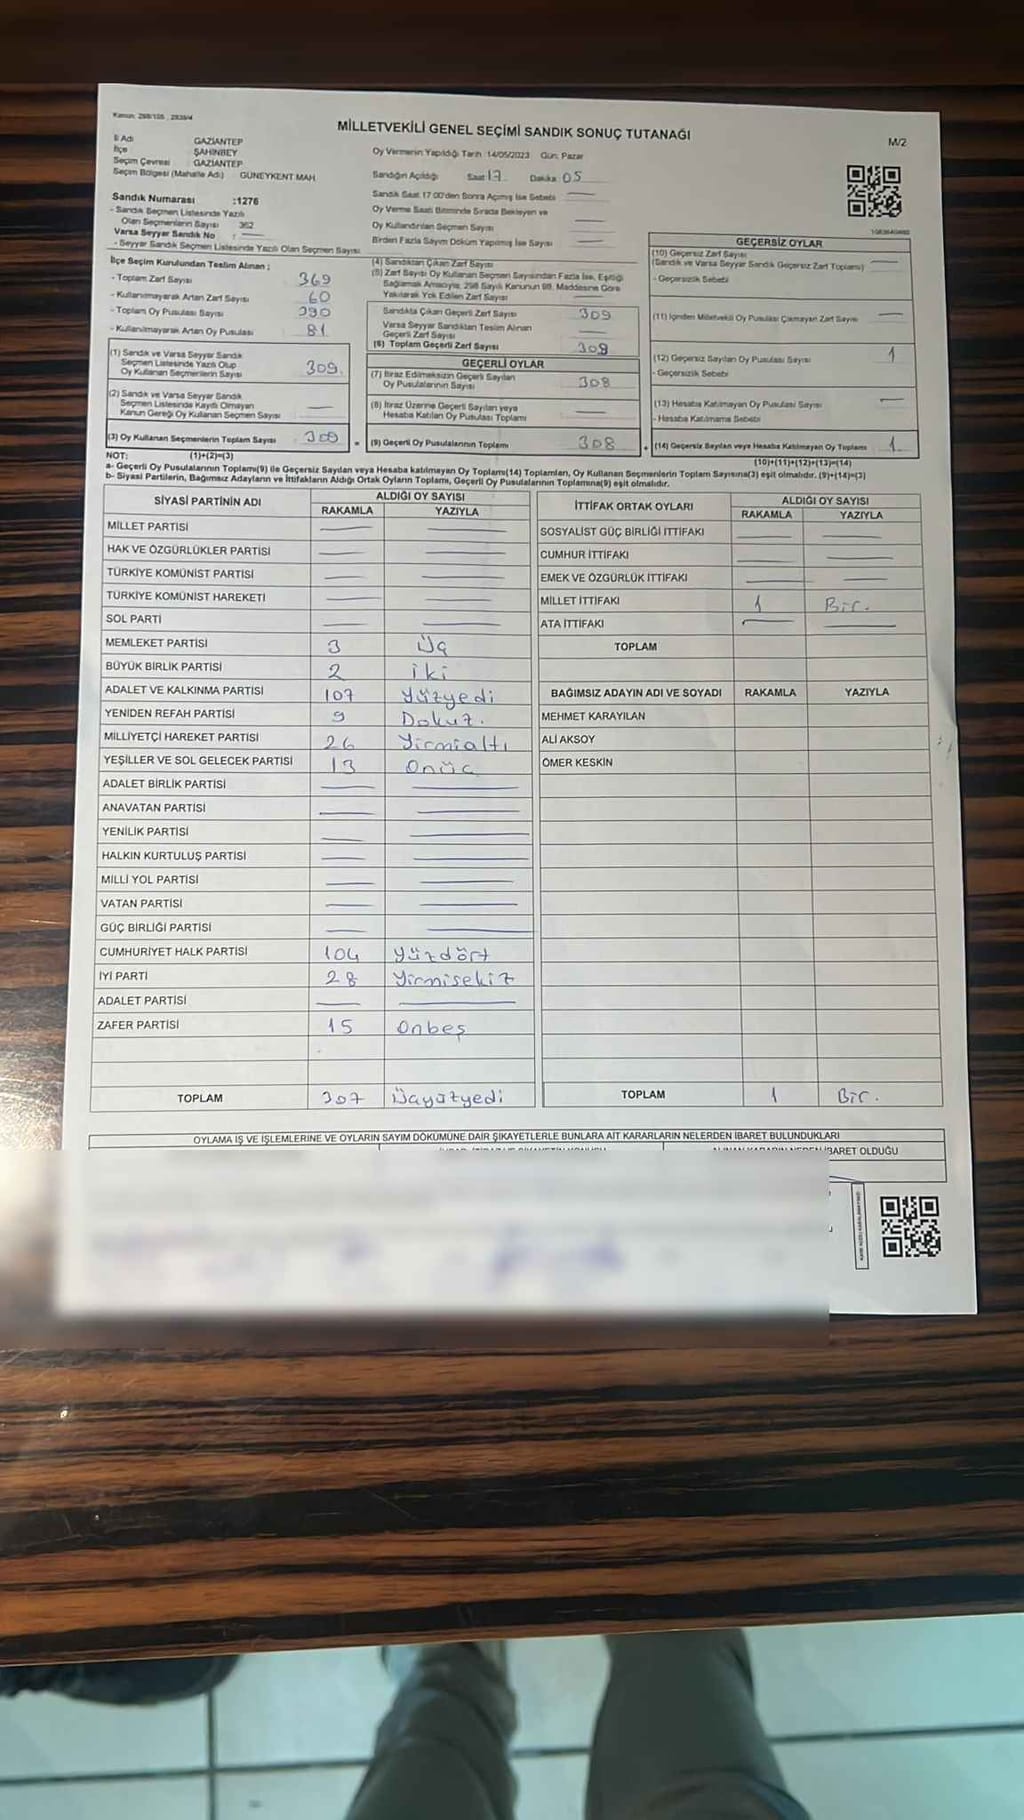 Kanun: 298/105 , 2839/4
MİLLETVEKİLİ GENEL SEÇİMİ SANDIK SONUÇ TUTANAĞI
M/2
İl Adı GAZİANTEP
İlçe ŞAHİNBEY
Seçim Çevresi GAZİANTEP
Seçim Bölgesi (Mahalle Adı) GÜNEYKENT MAH.
Sandık Numarası :1276
- Sandık Seçmen Listesinde Yazılı
Olan Seçmenlerin Sayısı 362
Varsa Seyyar Sandık No :
- Seyyar Sandık Seçmen Listesinde Yazılı Olan Seçmen Sayısı
Oy Vermenin Yapıldığı Tarih :14/05/2023 Gün: Pazar
Sandığın Açıldığı Saat 17 Dakika 05
Sandık Saat 17.00'den Sonra Açılmış İse Sebebi
Oy Verme Saati Bitiminde Sırada Bekleyen ve
Oy Kullandırılan Seçmen Sayısı
Birden Fazla Sayım Döküm Yapılmış İse Sayısı
İlçe Seçim Kurulundan Teslim Alınan ;
- Toplam Zarf Sayısı 369
- Kullanılmayarak Artan Zarf Sayısı 60
- Toplam Oy Pusulası Sayısı 390
- Kullanılmayarak Artan Oy Pusulası 81
(1) Sandık ve Varsa Seyyar Sandık
Seçmen Listesinde Yazılı Olup
Oy Kullanan Seçmenlerin Sayısı 309
(2) Sandık ve Varsa Seyyar Sandık
Seçmen Listesinde Kayıtlı Olmayan
Kanun Gereği Oy Kullanan Seçmen Sayısı
(3) Oy Kullanan Seçmenlerin Toplam Sayısı 309
(4) Sandıktan Çıkan Zarf Sayısı
(5) Zarf Sayısı Oy Kullanan Seçmen Sayısından Fazla İse, Eşitliği
Sağlamak Amacıyla, 298 Sayılı Kanunun 98. Maddesine Göre
Yakılarak Yok Edilen Zarf Sayısı
Sandıkta Çıkan Geçerli Zarf Sayısı 309
Varsa Seyyar Sandıktan Teslim Alınan
Geçerli Zarf Sayısı
(6) Toplam Geçerli Zarf Sayısı 309
GEÇERLİ OYLAR
(7) İtiraz Edilmeksizin Geçerli Sayılan
Oy Pusulalarının Sayısı 308
(8) İtiraz Üzerine Geçerli Sayılan veya
Hesaba Katılan Oy Pusulası Toplamı
= (9) Geçerli Oy Pusulalarının Toplamı 308
GEÇERSİZ OYLAR
(10) Geçersiz Zarf Sayısı
(Sandık ve Varsa Seyyar Sandık Geçersiz Zarf Toplamı)
- Geçersizlik Sebebi
(11) İçinden Milletvekili Oy Pusulası Çıkmayan Zarf Sayısı
(12) Geçersiz Sayılan Oy Pusulası Sayısı 1
- Geçersizlik Sebebi
(13) Hesaba Katılmayan Oy Pusulası Sayısı
- Hesaba Katılmama Sebebi
+ (14) Geçersiz Sayılan veya Hesaba Katılmayan Oy Toplamı 1
NOT: (1)+(2)=(3) (10)+(11)+(12)+(13)=(14)
a- Geçerli Oy Pusulalarının Toplamı(9) ile Geçersiz Sayılan veya Hesaba katılmayan Oy Toplamı(14) Toplamları, Oy Kullanan Seçmenlerin Toplam Sayısına(3) eşit olmalıdır. (9)+(14)=(3)
b- Siyasi Partilerin, Bağımsız Adayların ve İttifakların Aldığı Ortak Oyların Toplamı, Geçerli Oy Pusulalarının Toplamına(9) eşit olmalıdır.
SİYASİ PARTİNİN ADI ALDIĞI OY SAYISI
RAKAMLA YAZIYLA
MİLLET PARTİSİ
HAK VE ÖZGÜRLÜKLER PARTİSİ
TÜRKİYE KOMÜNİST PARTİSİ
TÜRKİYE KOMÜNİST HAREKETİ
SOL PARTİ
MEMLEKET PARTİSİ 3 Üç
BÜYÜK BİRLİK PARTİSİ 2 iki
ADALET VE KALKINMA PARTİSİ 107 Yüzyedi
YENİDEN REFAH PARTİSİ 9 Dokuz.
MİLLİYETÇİ HAREKET PARTİSİ 26 Yirmialtı
YEŞİLLER VE SOL GELECEK PARTİSİ 13 Onüç
ADALET BİRLİK PARTİSİ
ANAVATAN PARTİSİ
YENİLİK PARTİSİ
HALKIN KURTULUŞ PARTİSİ
MİLLİ YOL PARTİSİ
VATAN PARTİSİ
GÜÇ BİRLİĞİ PARTİSİ
CUMHURİYET HALK PARTİSİ 104 Yüzdört
İYİ PARTİ 28 Yirmisekiz
ADALET PARTİSİ
ZAFER PARTİSİ 15 Onbeş
TOPLAM 307 Üçyüzyedi
İTTİFAK ORTAK OYLARI ALDIĞI OY SAYISI
RAKAMLA YAZIYLA
SOSYALİST GÜÇ BİRLİĞİ İTTİFAKI
CUMHUR İTTİFAKI
EMEK VE ÖZGÜRLÜK İTTİFAKI
MİLLET İTTİFAKI 1 Bir.
ATA İTTİFAKI
TOPLAM
BAĞIMSIZ ADAYIN ADI VE SOYADI RAKAMLA YAZIYLA
MEHMET KARAYILAN
ALİ AKSOY
ÖMER KESKİN
TOPLAM 1 Bir.
OYLAMA İŞ VE İŞLEMLERİNE VE OYLARIN SAYIM DÖKÜMÜNE DAİR ŞİKAYETLERLE BUNLARA AİT KARARLARIN NELERDEN İBARET BULUNDUKLARI
İBARET OLDUĞU